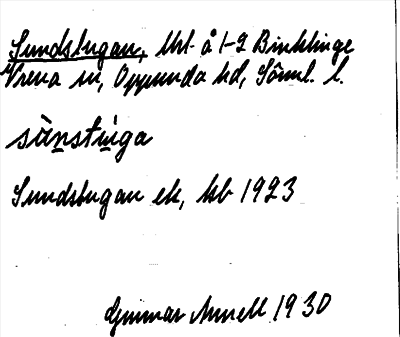 Sundstugan, lht å 1-2 Binklinge
Vrena sn, Oppunda hd, Söml. l.
sùnstùga
Sundstugan ek, kb 1923
Gunnar Arnell 1930